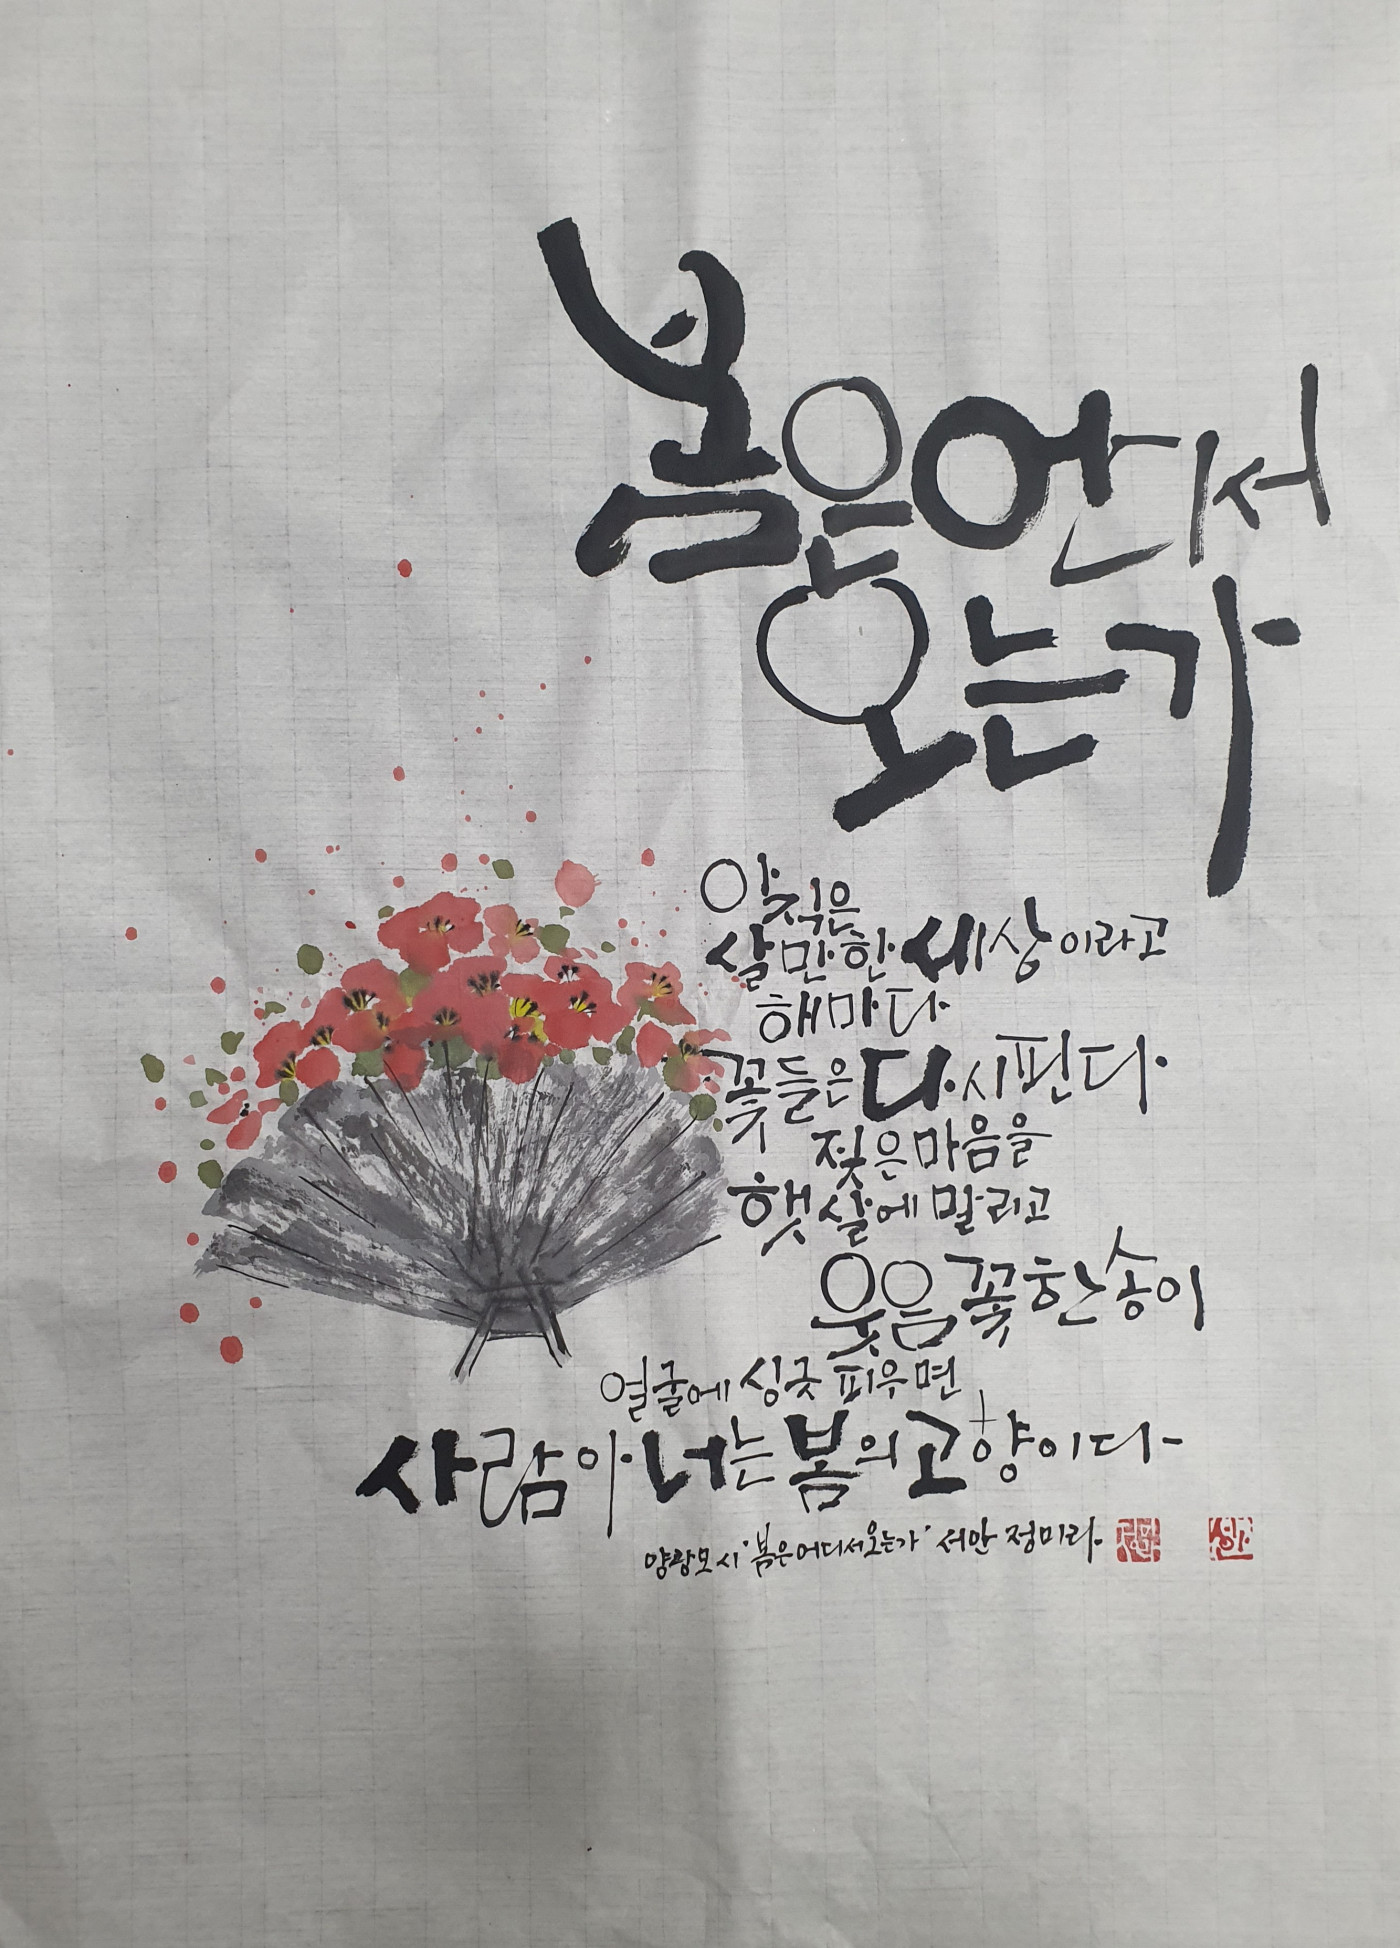 봄은 어디서
오는가
아직은
살만한 세상이라고
해마다
꽃들은 다시 핀다
젖은 마음을
햇살에 말리고
웃음꽃 한 송이
얼굴에 싱긋 피우면
사람아 너는 봄의 고향이다
양광모 시 '봄은 어디서 오는가' 서안 정미라